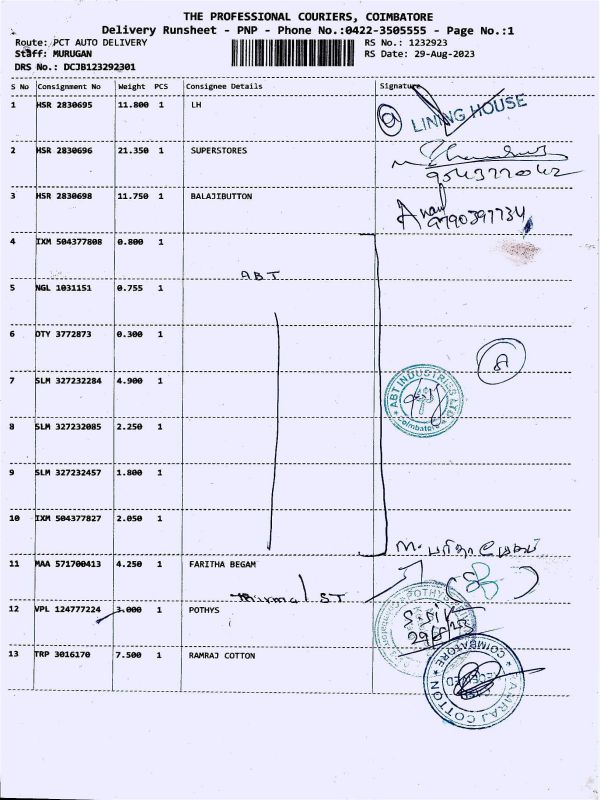 THE PROFESSIONAL COURIERS, COIMBATORE
Delivery Runsheet - PNP - Phone No.:0422-3505555 - Page No.:1
Route: PCT AUTO DELIVERY RS No.: 1232923
Staff: MURUGAN RS Date: 29-Aug-2023
DRS No.: DCJB123292301
S No Consignment No Weight PCS Consignee Details Signature
1 HSR 2830695 11.800 1 LH
LINING HOUSE
2 HSR 2830696 21.350 1 SUPERSTORES
9543770042
3 HSR 2830698 11.750 1 BALAJIBUTTON
Anand
9790397734
4 IXM 504377808 0.800 1
ABT
5 NGL 1031151 0.755 1
6 DTY 3772873 0.300 1
7 SLM 327232284 4.900 1
ABT INDUSTRIES LTD.
Coimbatore
8 SLM 327232085 2.250 1
9 SLM 327232457 1.800 1
10 IXM 504377827 2.050 1
11 MAA 571700413 4.250 1 FARITHA BEGAM
Thirumal ST
12 VPL 124777224 3.000 1 POTHYS
POTHYS
13 TRP 3016170 7.500 1 RAMRAJ COTTON
RAMRAJ COTTON
COIMBATORE
RECEIVED